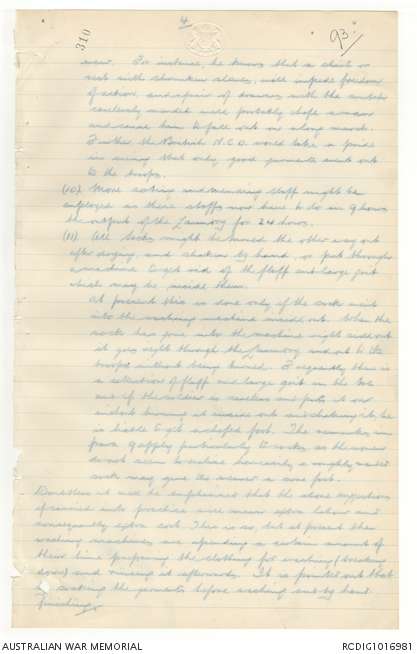 4
310
93
wear. For instance, he knows that a shirt or
vest with shrunken sleeves, will impede freedom
of action, and a pair of drawers with the
carelessly mended will probably chafe a man
and cause him to fall out on a long march.
Further the British N.C.O. would take a pride
in seeing that only good garments went out
to the troops.
(10) More sorting and mending staff might be
employed as these staffs now have to do in 9 hours
the output of the Laundry for 24 hours.
(11) All socks might be turned the other way out
after drying, and shaken by hand, or put through
a machine to get rid of the fluff and large grit
which may be inside them.
At present this is done only if the sock went
into the washing machine inside out. When the
sock has gone into the machine right side out
it goes right through the Laundry and out to the
troops without being turned. Frequently there is
a collection of fluff and large grit in the toe
and if the soldier is careless and puts it on
without turning it inside out and shaking it, he
is liable to get a chafed foot. The remarks in
para 9 apply particularly to socks as the women
do not seem to realise how easily a roughly mended
sock may give the wearer a sore foot.
Doubtless it will be emphasised that the above suggestions
if carried into practice will mean extra labour and
consequently extra cost. This is so, but at present the
washing machines are spending a certain amount of
their time preparing the clothing for washing (breaking
down) and rinsing it afterwards. It is pointed out that
by soaking the garments before washing and by hand
finishing
AUSTRALIAN WAR MEMORIAL
RCDIG1016981